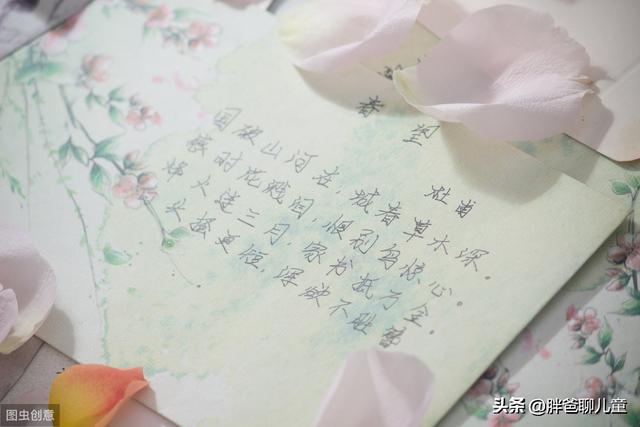 春望
杜甫
国破山河在,城春草木深。
感时花溅泪,恨别鸟惊心。
烽火连三月,家书抵万金。
头搔更短,浑欲不胜簪
图虫创意
头条 @胖爸聊儿童